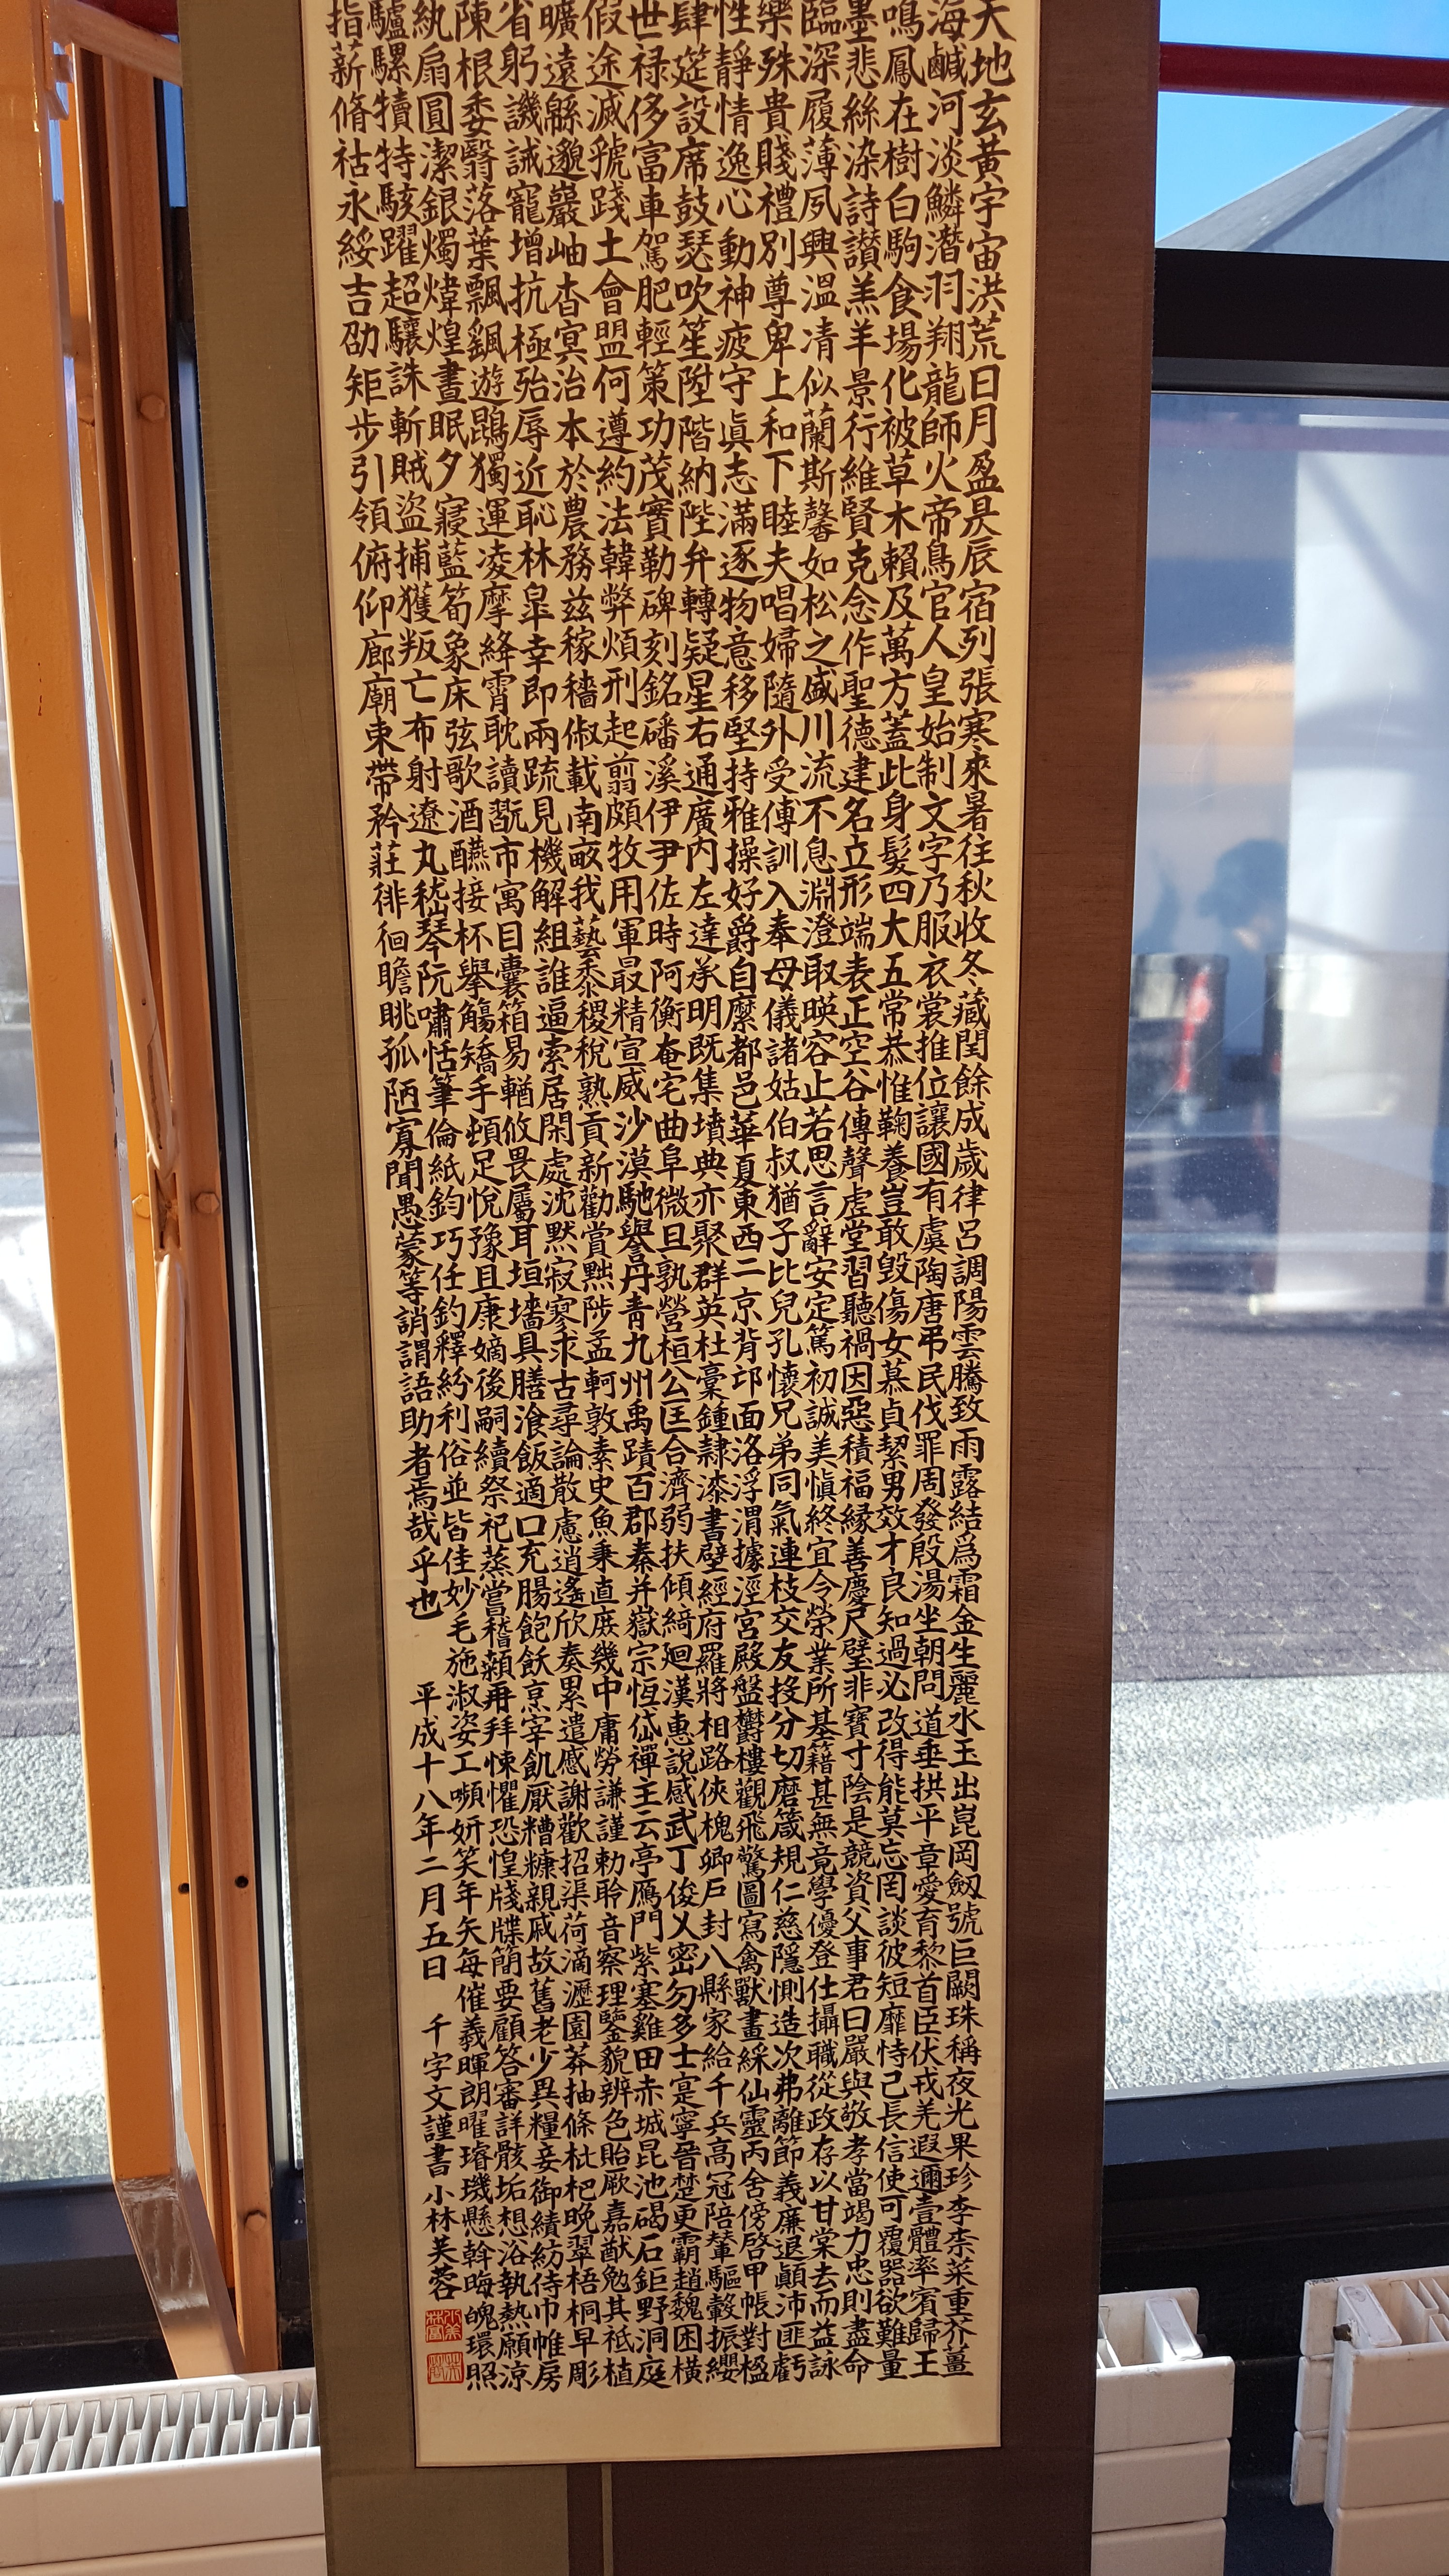 天地玄黄宇宙洪荒日月盈昃辰宿列張寒來暑往秋收冬藏閏餘成歲律呂調陽雲騰致雨露結爲霜金生麗水玉出崑岡劔號巨闕珠稱夜光果珍李柰菜重芥薑
海鹹河淡鱗潛羽翔龍師火帝鳥官人皇始制文字乃服衣裳推位讓國有虞陶唐弔民伐罪周發殷湯坐朝問道垂拱平章愛育黎首臣伏戎羌遐邇壹體率賓歸王
鳴鳳在樹白駒食場化被草木賴及萬方蓋此身髮四大五常恭惟鞠養豈敢毀傷女慕貞絜男效才良知過必改得能莫忘罔談彼短靡恃己長信使可覆器欲難量
墨悲絲染詩讃羔羊景行維賢克念作聖德建名立形端表正空谷傳聲虛堂習聽禍因惡積福縁善慶尺璧非寶寸陰是競資父事君曰嚴與敬孝當竭力忠則盡命
臨深履薄夙興溫凊似蘭斯馨如松之盛川流不息淵澄取暎容止若思言辭安定篤初誠美慎終宜令榮業所基籍甚無竟學優登仕攝職從政存以甘棠去而益詠
樂殊貴賤禮別尊卑上和下睦夫唱婦隨外受傅訓入奉母儀諸姑伯叔猶子比兒孔懷兄弟同氣連枝交友投分切磨箴規仁慈隱惻造次弗離節義廉退顛沛匪虧
性靜情逸心動神疲守眞志滿逐物意移堅持雅操好爵自縻都邑華夏東西二京背邙面洛浮渭據涇宮殿盤鬱樓觀飛驚圖寫禽獸畫綵仙靈丙舍傍啓甲帳對楹
肆筵設席鼓瑟吹笙陞階納陛弁轉疑星右通廣內左達承明既集墳典亦聚群英杜稾鍾隸漆書壁經府羅將相路俠槐卿戶封八縣家給千兵高冠陪輦驅轂振纓
世禄侈富車駕肥輕策功茂實勒碑刻銘磻溪伊尹佐時阿衡奄宅曲阜微旦孰營桓公匡合濟弱扶傾綺廻漢惠說感武丁俊乂密勿多士寔寧晉楚更霸趙魏困横
假途滅虢踐土會盟何遵約法韓弊煩刑起翦頗牧用軍最精宣威沙漠馳譽丹青九州禹蹟百郡秦并嶽宗恆岱禪主云亭鴈門紫塞雞田赤城昆池碣石鉅野洞庭
曠遠緜邈巖岫杳冥治本於農務茲稼穡俶載南畝我藝黍稷稅熟貢新勸賞黜陟孟軻敦素史魚秉直庶幾中庸勞謙謹勅聆音察理鑒貌辨色貽厥嘉猷勉其祗植
省躬譏誡寵增抗極殆辱近恥林皐幸即兩疏見機解組誰逼索居閑處沈默寂寥求古尋論散慮逍遙欣奏累遣慼謝歡招渠荷滴瀝園莽抽條枇杷晚翠梧桐早彫
陳根委翳落葉飄颻遊鵾獨運凌摩絳霄耽讀翫市寓目囊箱易輶攸畏屬耳垣墻具膳飡飯適口充腸飽飫烹宰飢厭糟糠親戚故舊老少異糧妾御績紡侍巾帷房
紈扇圓潔銀燭煒煌晝眠夕寢藍筍象床弦歌酒醼接杯舉觴矯手頓足悅豫且康嫡後嗣續祭祀蒸嘗稽顙再拜悚懼恐惶牋牒簡要顧答審詳骸垢想浴執熱願涼
驢騾犢特駭躍超驤誅斬賊盜捕獲叛亡布射遼丸嵇琴阮嘯恬筆倫紙鈞巧任釣釋紛利俗並皆佳妙毛施淑姿工嚬妍笑年矢每催羲暉朗曜璿璣懸斡晦魄環照
指薪脩祜永綏吉劭矩步引領俯仰廊廟束帶矜莊徘徊瞻眺孤陋寡聞愚蒙等誚謂語助者焉哉乎也
平成十八年二月五日　千字文謹書　小林芙蓉